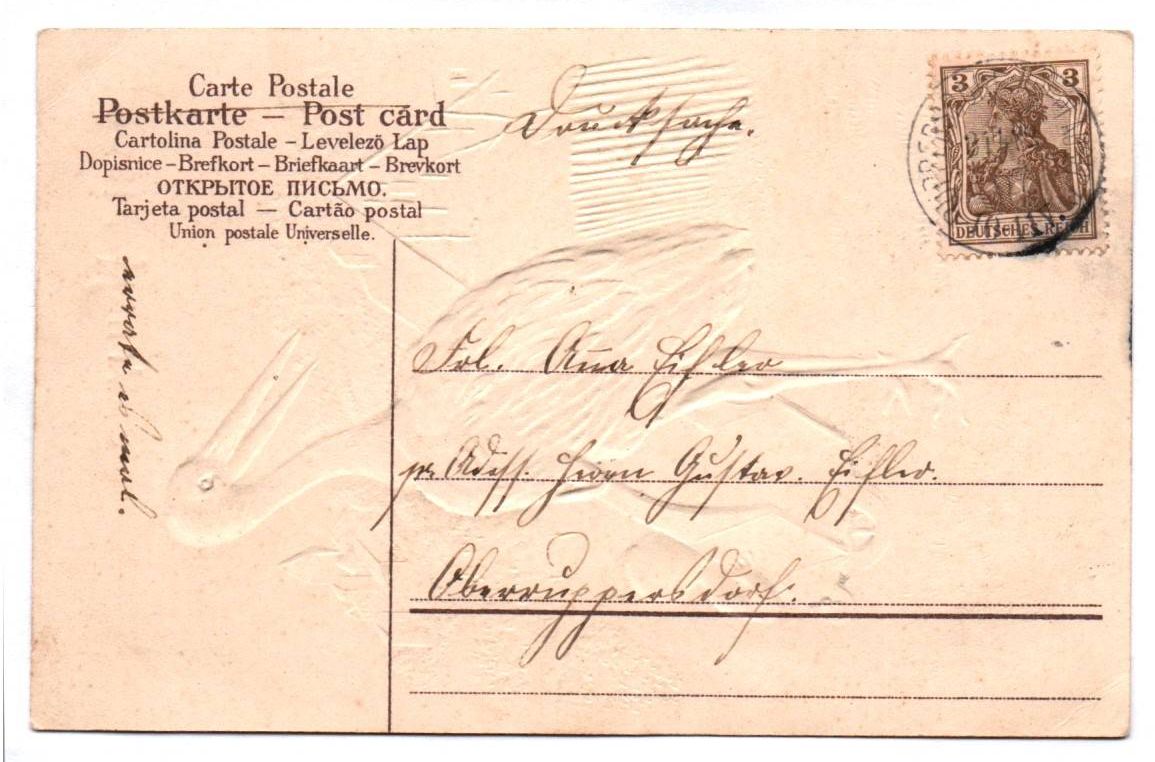 Carte Postale
Postkarte – Post card
Cartolina Postale – Levelező Lap
Dopisnice – Brefkort – Briefkaart – Brevkort
ОТКРЫТОЕ ПИСЬМО.
Tarjeta postal — Cartão postal
Union postale Universelle.
Drucksache.
3 3
DEUTSCHES REICH
Frl. Anna Eifler
pr. Adss. Herrn Gustav. Eifler.
Oberruppersdorf.
mal.